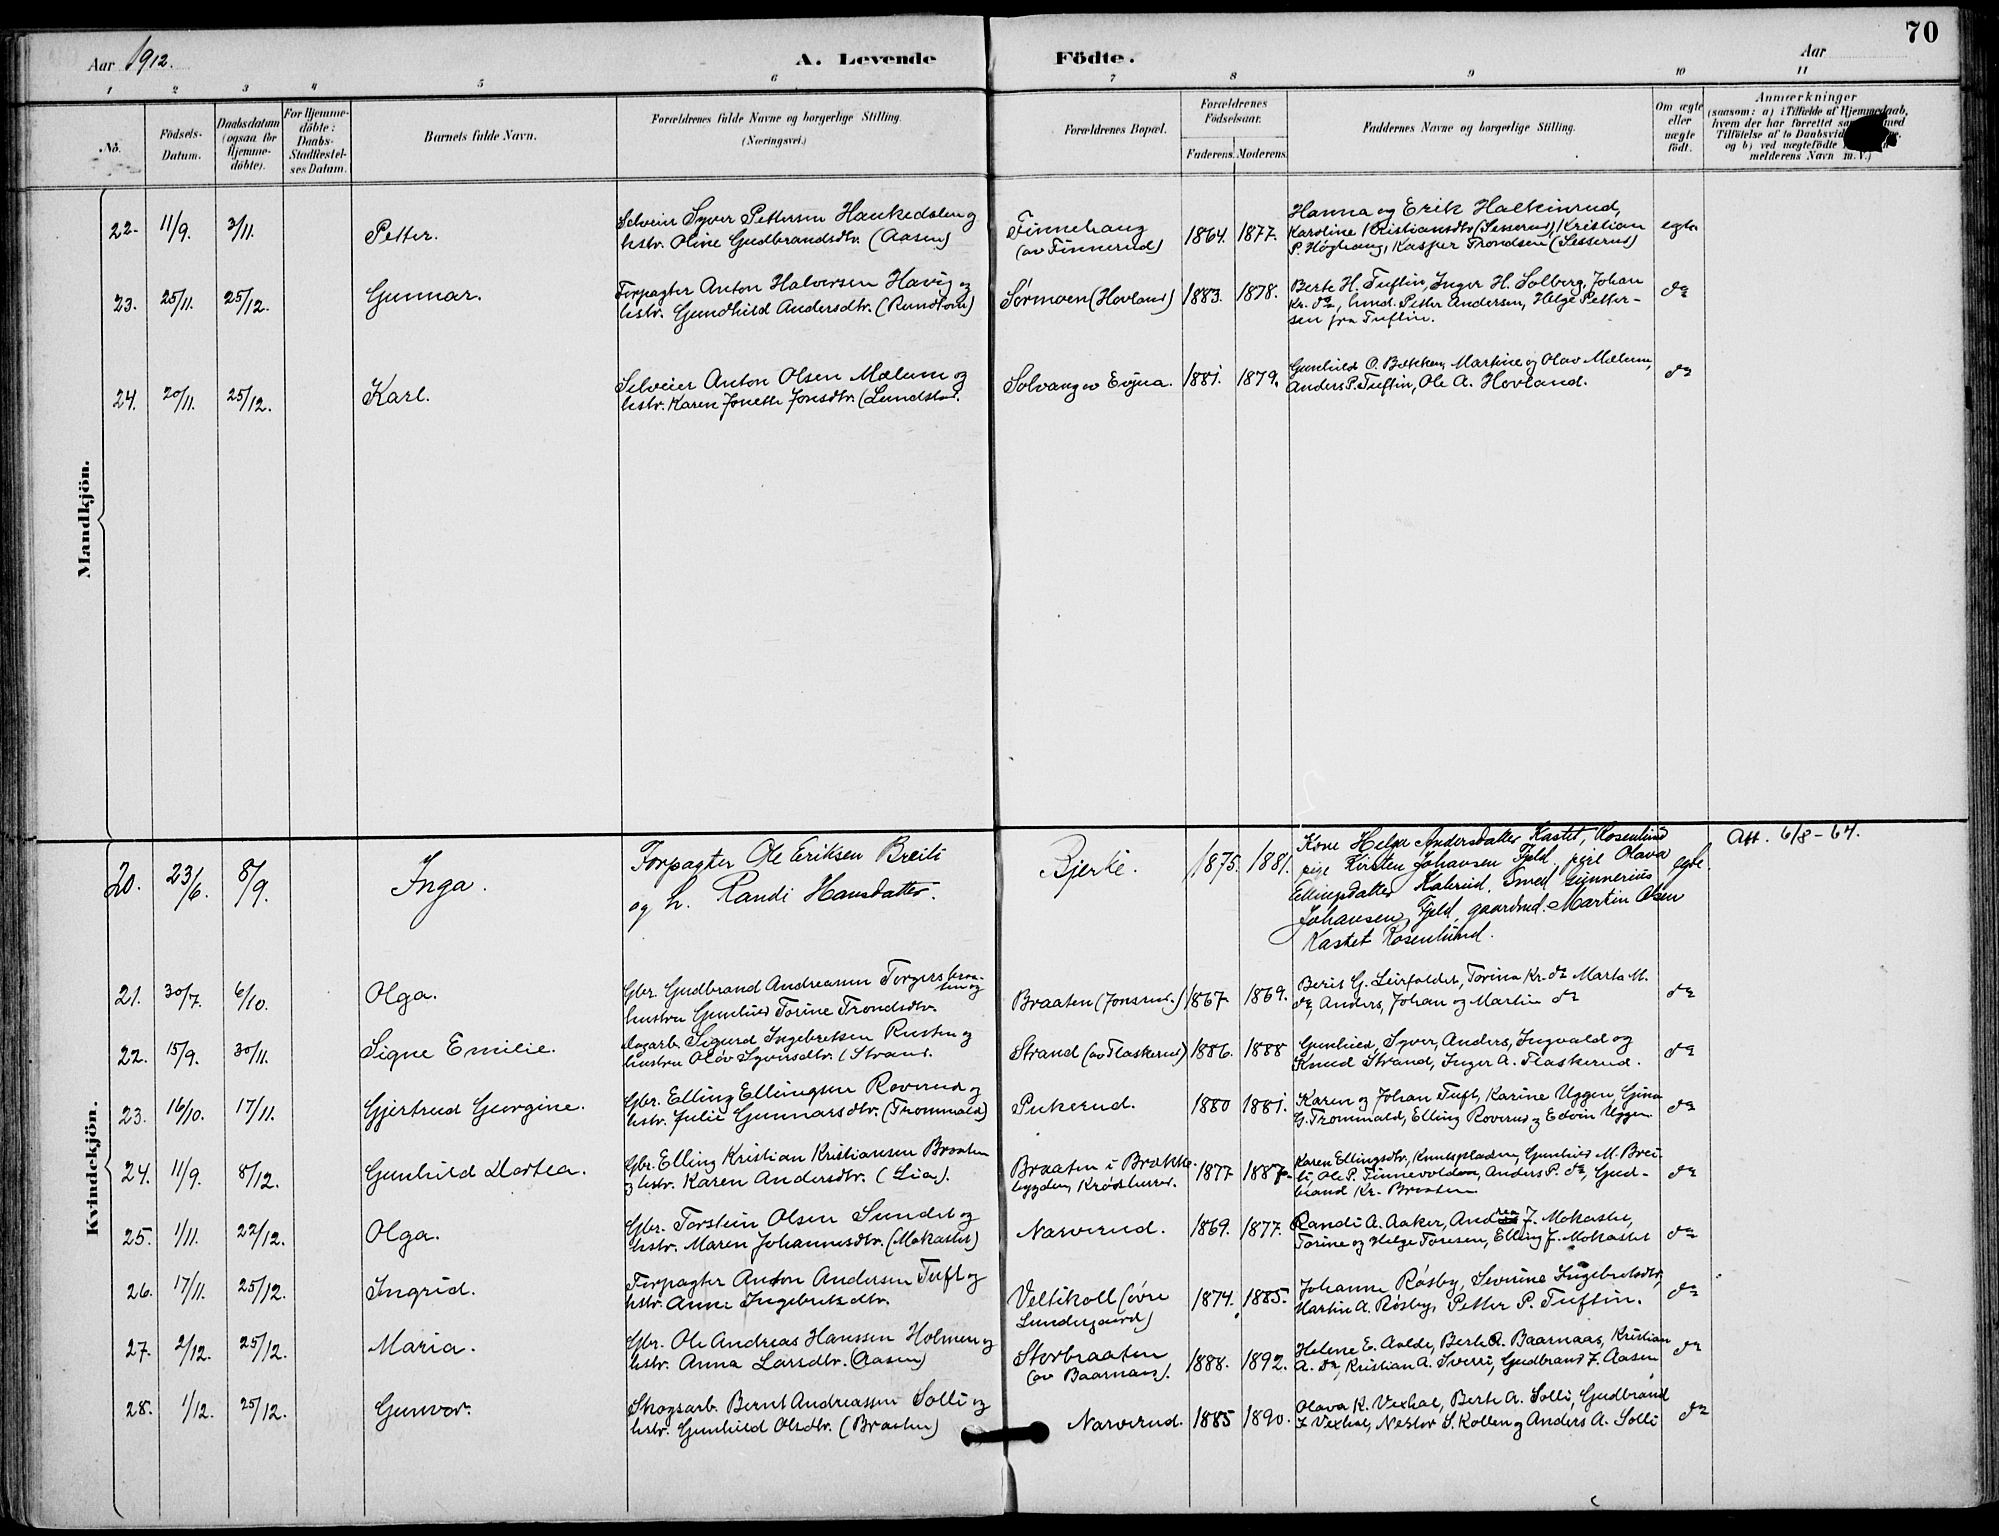 70
Aar 1912.
A. Levende Födte.
Aar
1 2 3 4 5 6 7 8 9 10 11
No.
Födsels-
Datum.
Daabsdatum
(ogsaa for
Hjemme-
döbte).
For Hjemme-
döbte:
Daabs-
Stadfæstel-
ses Datum.
Barnets fulde Navn.
Forældrenes fulde Navne og borgerlige Stilling.
(Næringsvei.)
Forældrenes Bopæl.
Forældrenes
Födselsaar.
Faderens. Moderens.
Faddernes Navne og borgerlige Stilling.
Om ægte
eller
uægte
födt.
Anmærkninger
(saasom: a) i Tilfælde af Hjemmedaab,
hvem der har forrettet med
Tilföielse af to
og b) ved uægtefödte
melderens Navn m. V.)
Mandkjön.
22. 11/9. 3/11. Petter.
Selveier Syver Pettersen Haukedalen og
hstr. Oline Gudbrandsdtr. (Aasen)
Finnehaug
(av Finnerud)
1864. 1877.
Hanna og Erik Halkinrud,
Karoline Kristiansdtr (Sesserud), Kristian
P. Høghaug, Kasper Trondsen (Sesserud)
egte
23. 25/11. 25/12. Gunnar.
Forpagter Anton Halvorsen Havig og
hstr. Gundhild Andersdtr. (Rundtom)
Sørmoen (Hovland)
1883. 1878.
Berte H. Tuftin, Inger H. Solberg, Johan
Kr. do, Petter Andersen, Helge Petter-
sen fra Tuftin.
do
24. 20/11. 25/12. Karl.
Selveier Anton Olsen Mælum og
hstr. Karen Jonette Jonsdtr. (Lundstad.
Solvang av Evjua.
1881. 1879.
Gunhild O. Bekken, Martine og Olav Mælum,
Anders P. Tuftin, Ole A. Hovland.
do
Kvindekjön.
20. 23/6. 8/9. Inga.
Forpagter Ole Eriksen Breili
og h. Randi Hansdatter.
Bjerke.
1875. 1881.
Kone Helga Andersdatter Kastet, Rosenlund
pige Kirsten Johansen Fjeld, pige Olava
Ellingsdatter Smed Gunnerius
Johansen Fjeld, gaardmd. Martin Olsen
Kastet Rosenlund.
egte.
Att. 6/8-64.
21. 30/7. 6/10. Olga.
Gbr. Gudbrand Andreasen Torgersbraa-
ten og
hustru Gunhild Torine Trondsdtr.
Braaten (Jonsrud.)
1867 1869.
Berit G. Leirfaldet, Torina Kr. do Marta M.
do, Anders, Johan og Martin do
do
22. 15/9. 30/11. Signe Emilie.
dagarb. Sigurd Ingebretsen Rusten og
hustru Olav Syversdtr. (Strand.
Strand (av Flaskerud)
1886. 1888
Gunhild, Syver, Anders, Ingvald og
Knud Strand, Inger A. Flaskerud.
do
23. 16/10. 17/11. Gjertrud Georgine.
Gbr. Elling Ellingsen Roverud og
hstr. Julie Gunnarsdtr. (Trommald)
Pukerud.
1880 1881.
Karen og Johan Tuft, Karine Uggen Gina
G. Trommald, Elling Roverud og Edvin Uggen
do
24. 11/9. 8/12. Gunhild Dortea.
Gbr. Elling Kristian Kristiansen Braaten
og hstr. Karen Andersdtr. (Lia).
Braaten i Brække-
bygden, Krødsherred.
1877 1887.
Karen Ellingsdtr, Gunhild M. Brei-
li, Ole P. Finnevolden, Anders P. do, Gud-
brand Kr. Braaten
do
25. 1/11. 22/12. Olga.
Gbr. Torstein Olsen Sundet og
hstr. Maren Johannesdtr. (Mokastet)
Narverud.
1869. 1877.
Randi A. Aaker, Andrea J. Mokastet,
Torine og Helge Toresen, Elling J. Mokastet
do
26. 17/11. 25/12. Ingrid.
Forpagter Anton Andersen Tuft og
hstr. Anne Ingebretsdtr.
Veltikoll (øvre
Lundesgaard)
1874. 1885.
Johanne Røsby, Severine Ingebretsdtr,
Martin A. Røsby, Petter P. Tuftin.
do
27. 2/12. 25/12. Maria.
Gbr. Ole Andreas Hanssen Holmen og
hstr. Anna Larsdtr. (Aasen)
Storbraaten
(av Baarnaas).
1888. 1892.
Helene E. Aalde, Berte A. Baarnaas, Kristian
A. do, Kristian A. Sverri, Gudbrand J. Aasen
do
28. 1/12. 25/12. Gunvor.
Skogsarb. Bernt Andreassen Solli og
hstr. Gunhild Olsdtr. (Braaten)
Narverud.
1885 1890.
Olava K. Vexhal, Berte A. Solli, Gudbrand
J. Vexhal, Nestor S. Kollen og Anders A. Solli
do